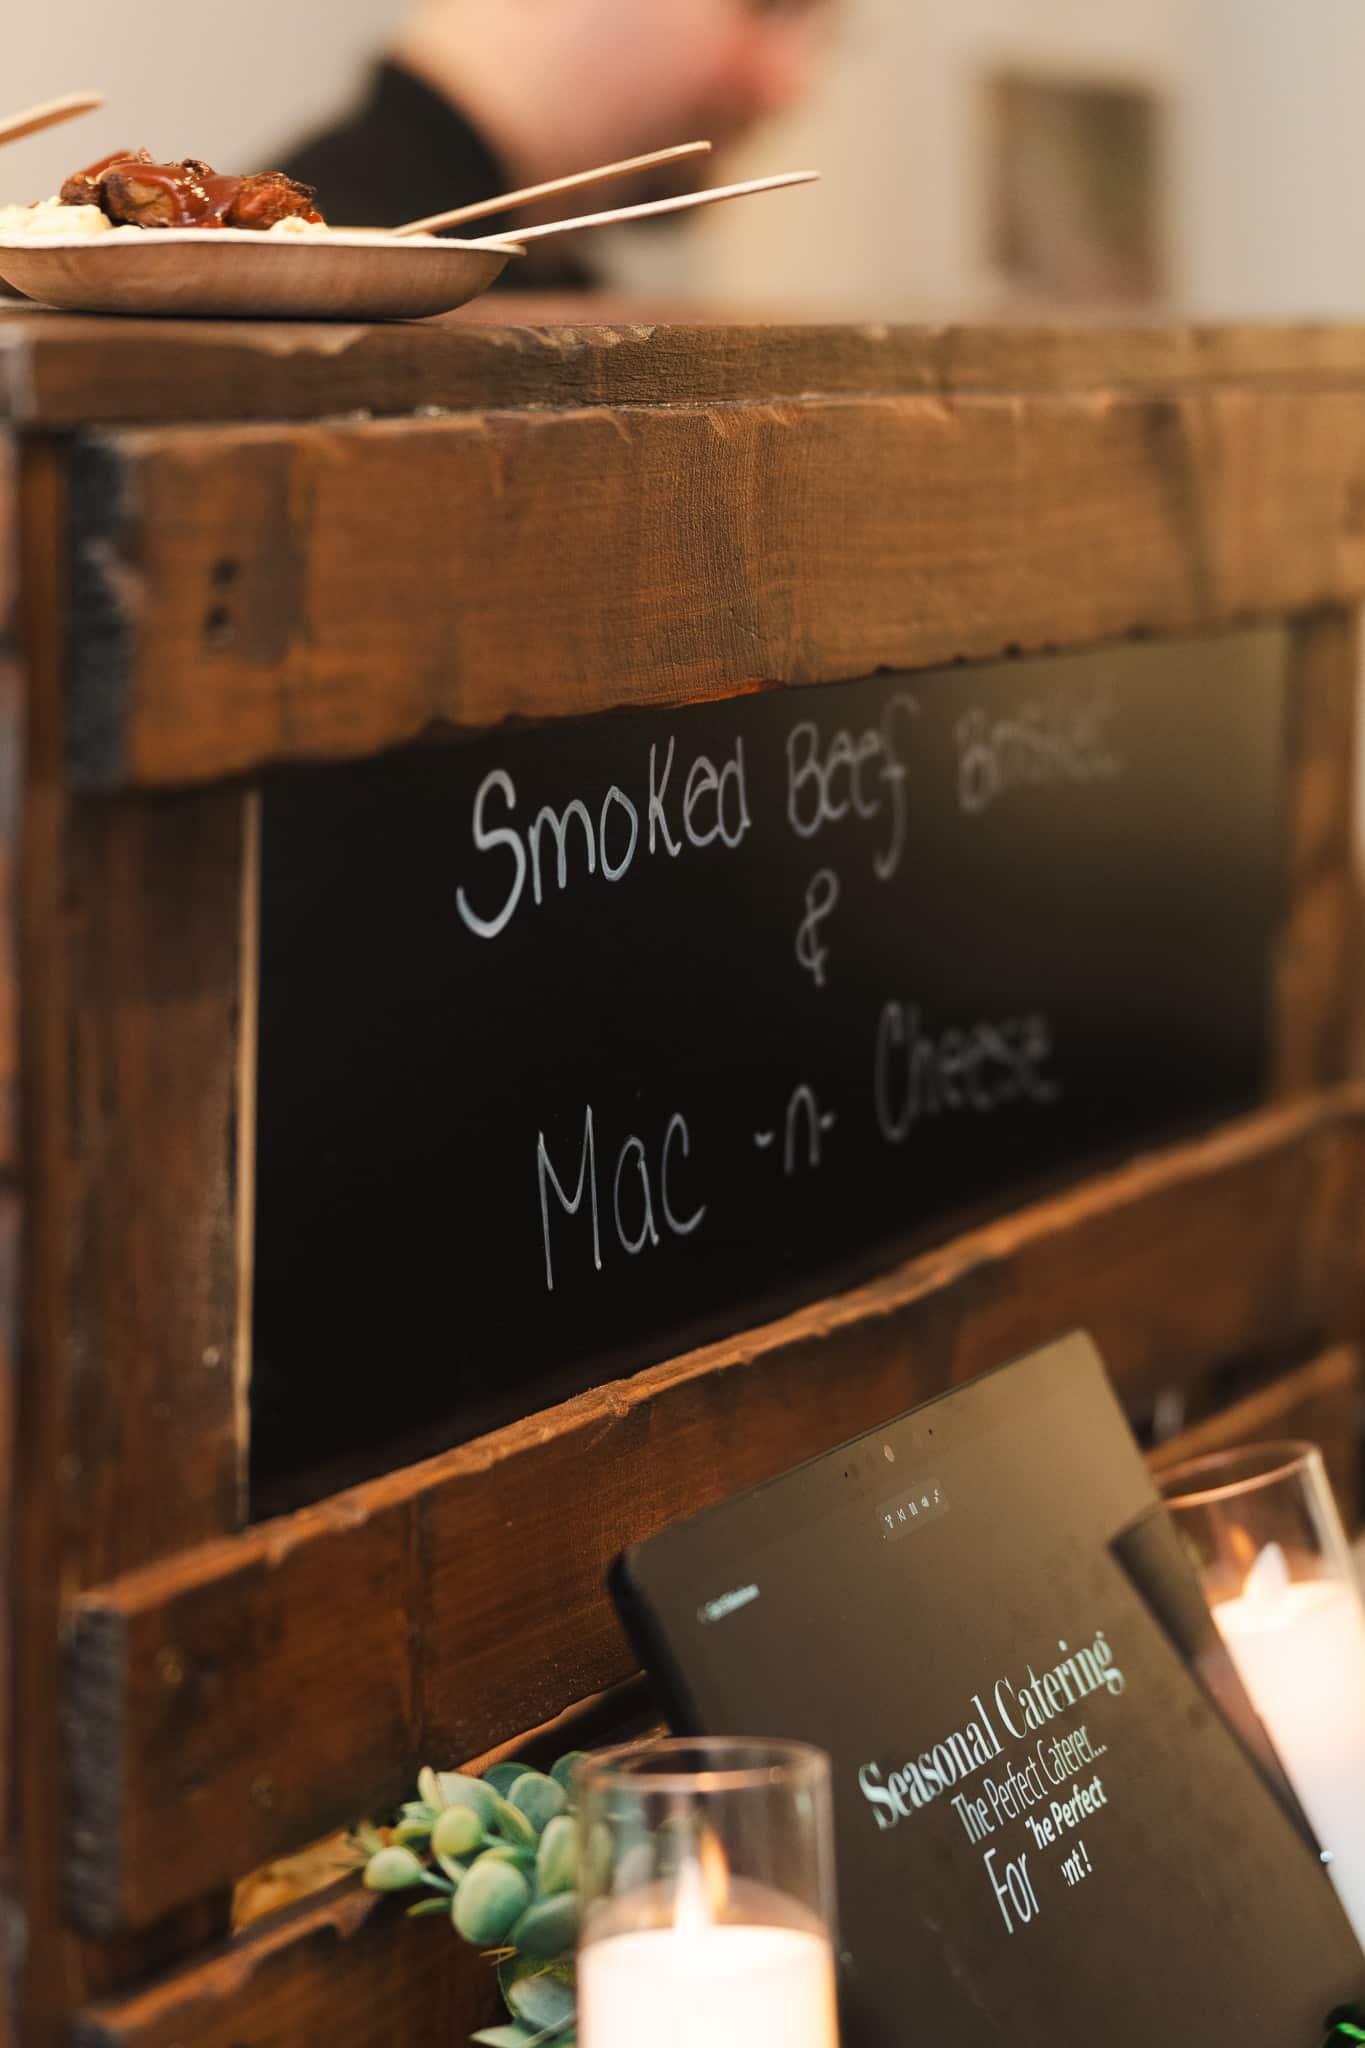 Smoked Beef Brisket
&
Mac -n- Cheese
Seasonal Catering
The Perfect Caterer...
For he Perfect
nt!